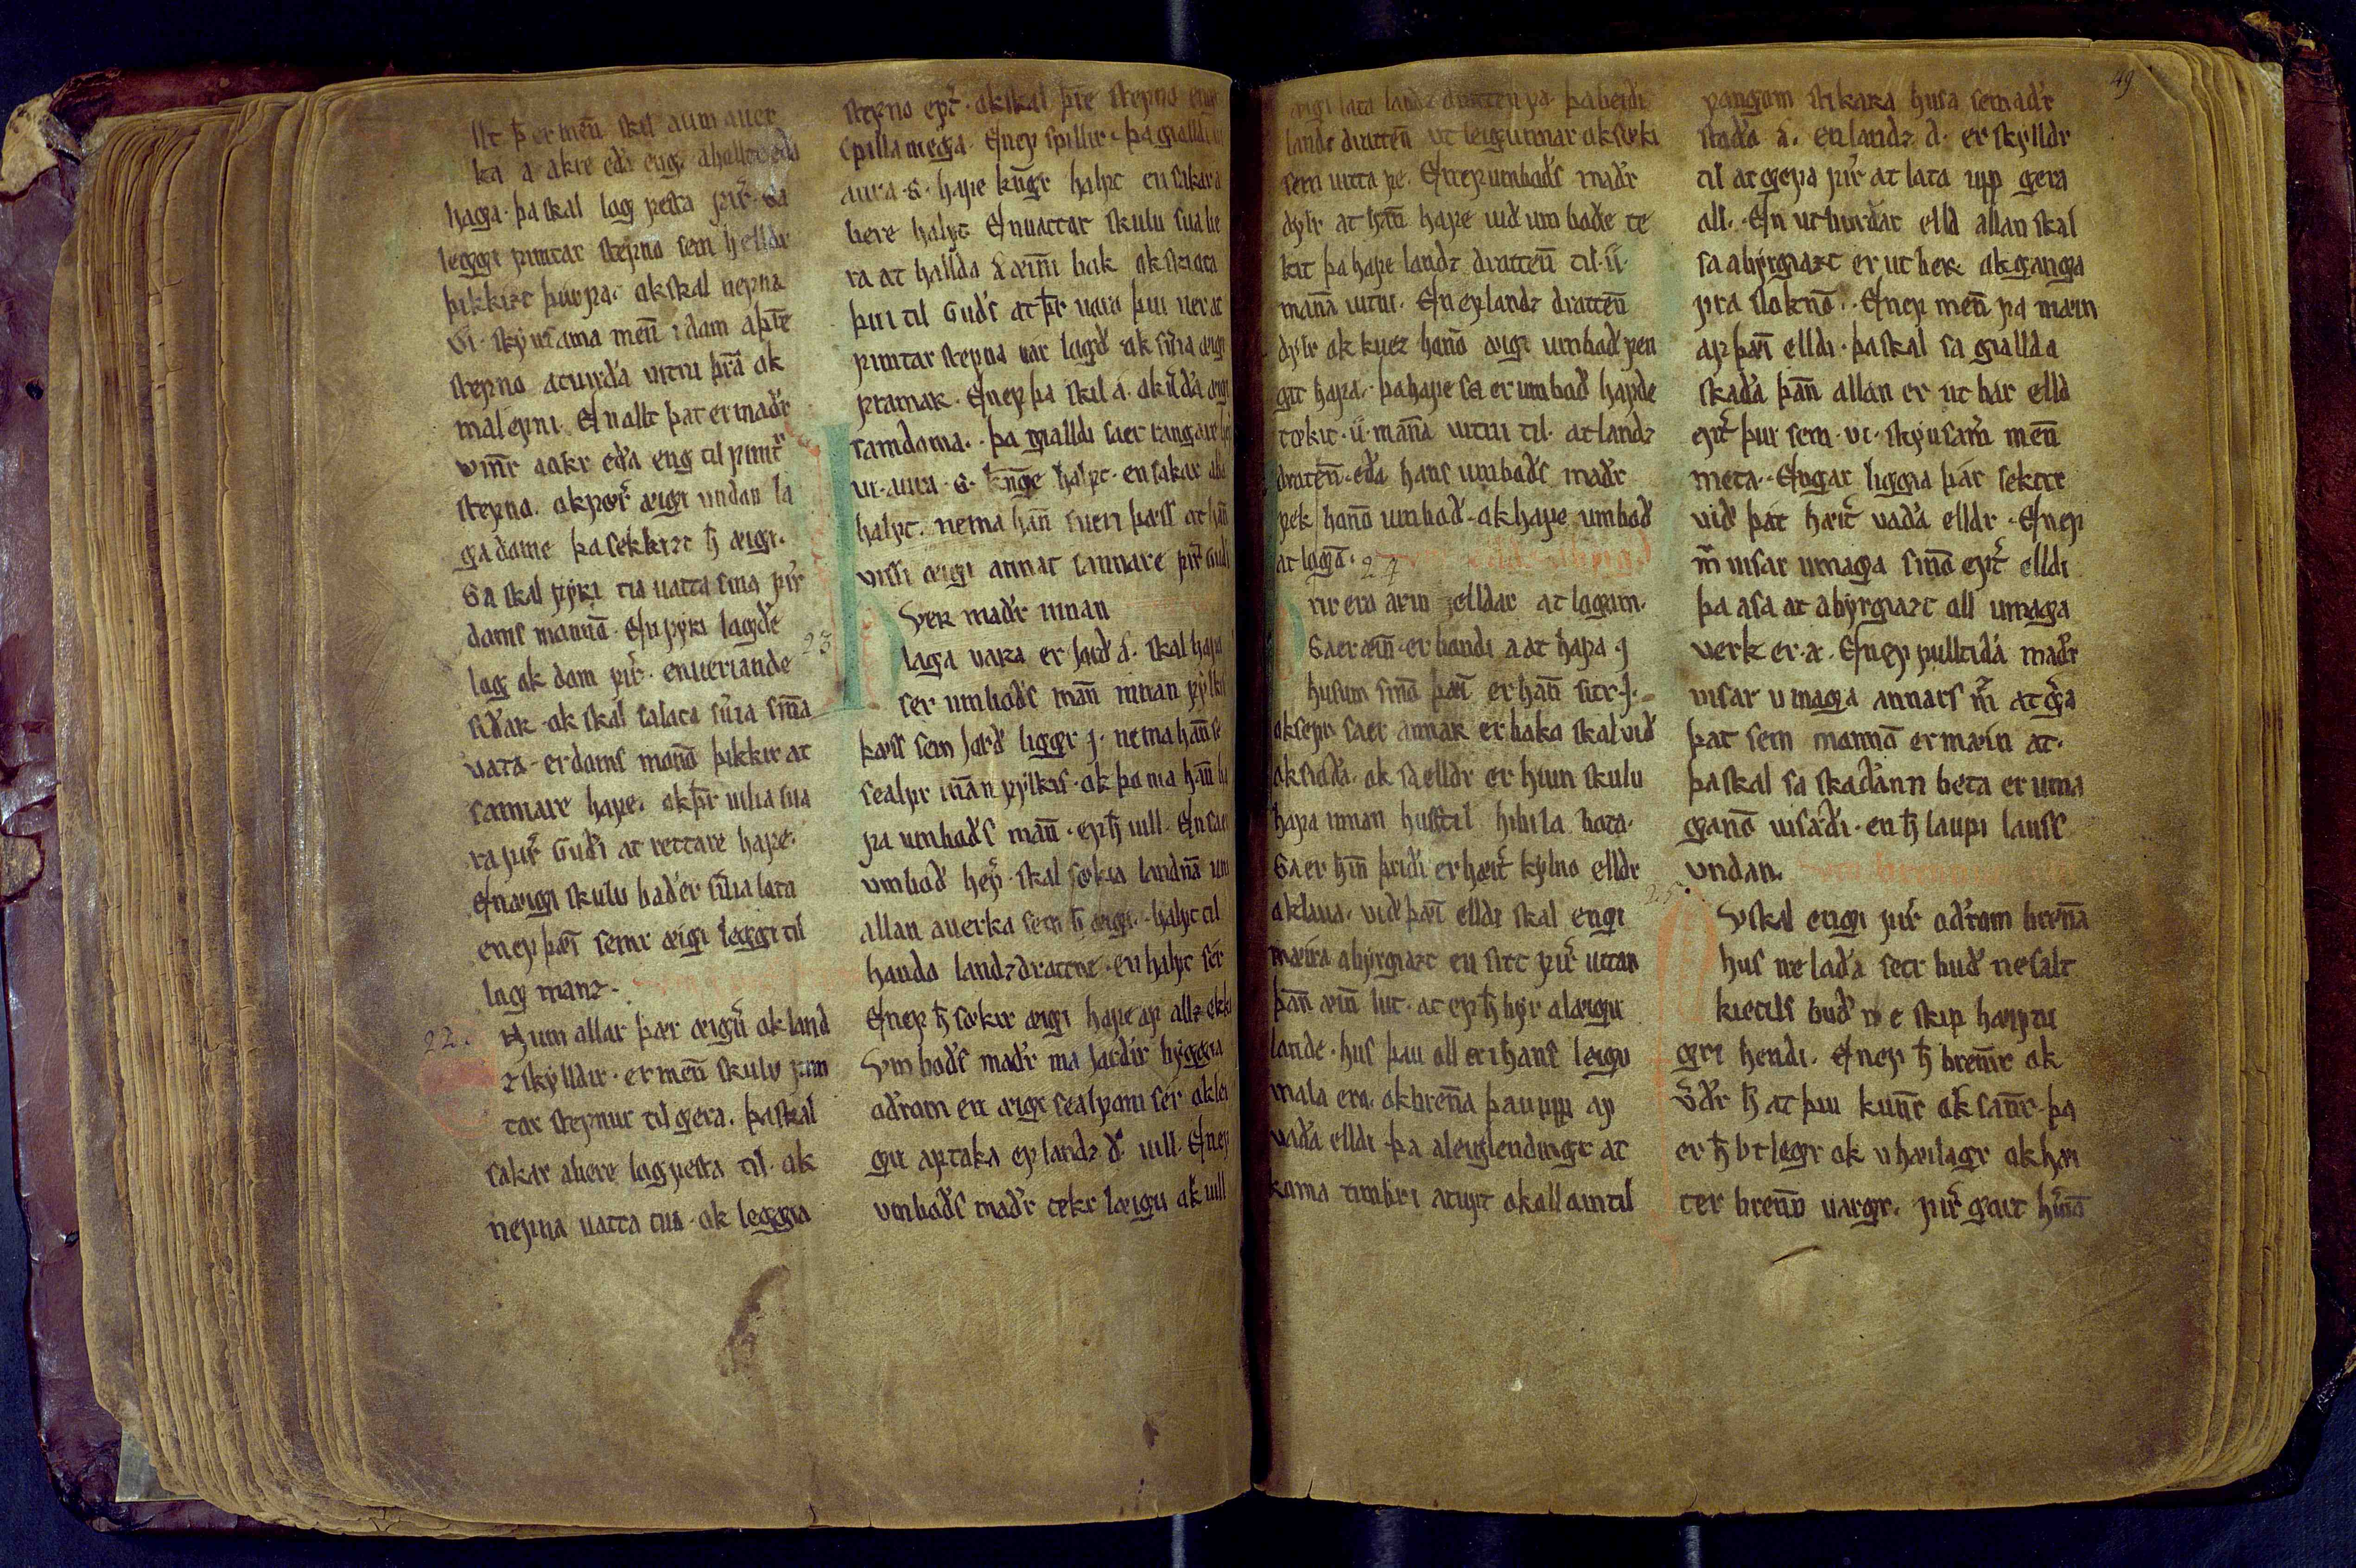 llt þ er men̅ skil a um auer
ka a akre eða eng. a hallto eða
haga. þa skal lag festa fir͛. Sa
leggi fimtar stefno sem helldr
þikkizt þurfa. ok skal nefna
vi. skynsama men̅ i dom a þr̅e
stefno at urða uitni þr̅a ok
malefni. En allt þat er maðr
vinr͛ a akr eða eng til fimt͛
stefno. ok før͛ æigi undan la
ga dome þa sekkizt h̅ æigi.
Sa skal fyrr tia uatta sina fir͛
doms mannū. En fyrr lagðe
lag ok dom fir͛. en ueriande
siðar ok skal sa lata suia sin̅a
vata. er doms monō þikkir at
sannare hafe. ok þr͛ uilia sua
ra fir͛ Guði at rettare hafe.
En æigi skulu baðer suia lata
en ef þæi͛ semr æigi leggi til
lag manz.
22. N um allar þær æigu̅ ok land
zskylldir. er men̅ skulu fim
tar stefnur til gera. þa skal
sakar abere lagfesta til. ok
nefna uatta tua. ok leggia
stefno ept͛. ok skal þre stefno engi
spilla mega. En ef spillir. þa gialldi
aura. s. hafe kn̅gr halft en sakara
bere halft. En uattar skulu sua be
ra at hallda a æin̅i bok ok skiota
þui til Guðs at þr͛ uaro þui uer at
fimtar stefna uar lagð. ok sin̅a æigi
framar. En ef þa skil a. ok uerða æigi
samdoma. þa gialldi sa er rangare
ui. aura. s. kn̅ge halft. en sakar abe
halft. nema han̅ sueri þess at han̅
uissi æigi annat sannare fir͛ Guði
23 Huer maðr innan
laga uarra er jorð a. skal hafa
ser umboðs man̅ innan fylkis
þæss sem jorð liggr j. nema han̅ se
sealfr in̅an fylkis. ok þo ma han̅ ha
fa umboðs man̅. ef h̅ uill. En sa er
umboð hef͛. skal sokia landna̅ um
allan auerka sem h̅ æigi. halft til
handa landzdrottne. en halft ser.
En ef h̅ sokir æigi hafe af allz ekki
Vmboðs maðr ma jarðir byggia
aðrom en æigi sealfom ser ok lei
gu aftaka ef landz d. uill. En ef
vmboðs maðr tekr læigu ok uill
æigi lata landz drotten fa. þa beiði
landz drotten̅ ut leigunnar ok soki
sem uitta fe. En ef umboðs maðr
dylr at han̅ hafe uid um boðe te
kit þa hafe landz drotten̅ til. ii.
man̅a uitni. En ef landz drotten̅
dylr ok kuez hano̅ æigi umboð fen
git hafa. þa hafe sa er umboð hafde
tøkit. ii. man̅a uitni til. at landz
droten̅. eða hans umboðs maðr
fek hano̅ umboð. ok hafe umboð
at laga̅. 24
Þrir ero arin elldar at lagum.
Saer æin̅. er bondi a at hafa j
husum sino̅ þæi͛ er han̅ sitr j.
ok sefr. saer annar er baka skal vid
ok sioða. ok sa elldr er hiun skulu
hafa innan huss til hibila bota.
Saer hin̅ þriði er hæit͛ kylno elldr
ok laua. uid þæi͛ elldi skal engi
mæira abyrgiazt en sitt fir͛ uttan
þan̅ æin̅ lut. at ef h̅ byr a læigu
lande. hus þau oll er i hans leigu
mala ero. ok bren̅a þau upp af
uaða elldi þa a leiglendingr at
koma timbri a tuft ok oll ain til
49
fangom stikara husa sem aðr
stoðo a. en landz d. er skylldr
til at gefa fir͛ at lata upp gera
all. En ut burðar elld allan skal
sa abyrgiazt er ut bek. ok ganga
fra sloknō. En ef men̅ fa mæin
af þæi͛ elldi. þa skal sa giallda
skaða þan̅ allan er ut bar elld
eft͛ þui sem. vi. skynsam͛ men̅
meta. Engar liggia þar sektir
við þat hæit͛ uaða elldr. En ef
m̅ uisar umaga sino̅ eft͛ elldi
þa a sa at abyrgiazt oll umaga
verk er a. En ef fulltiða maðr
uisar umaga annars m̅ at g͛a
þat sem monnō er mæin at.
þa skal sa skaðann beta er uma
ganō uisaði. en h̅ laupi lauss
undan.
25. Nv skal engi fir͛ oðrom bren̅a
hus ne laða setr buð ne salt
kietils buð ne skip haffu
gri hendi. En ef h̅ bren̅ir ok
v̅ðr h̅ at þui kun̅r ok san̅r. þa
er h̅ vtlegr ok v hæilagr ok hæi
ter bren̅o uargr. fir͛ gort hu̅io̅